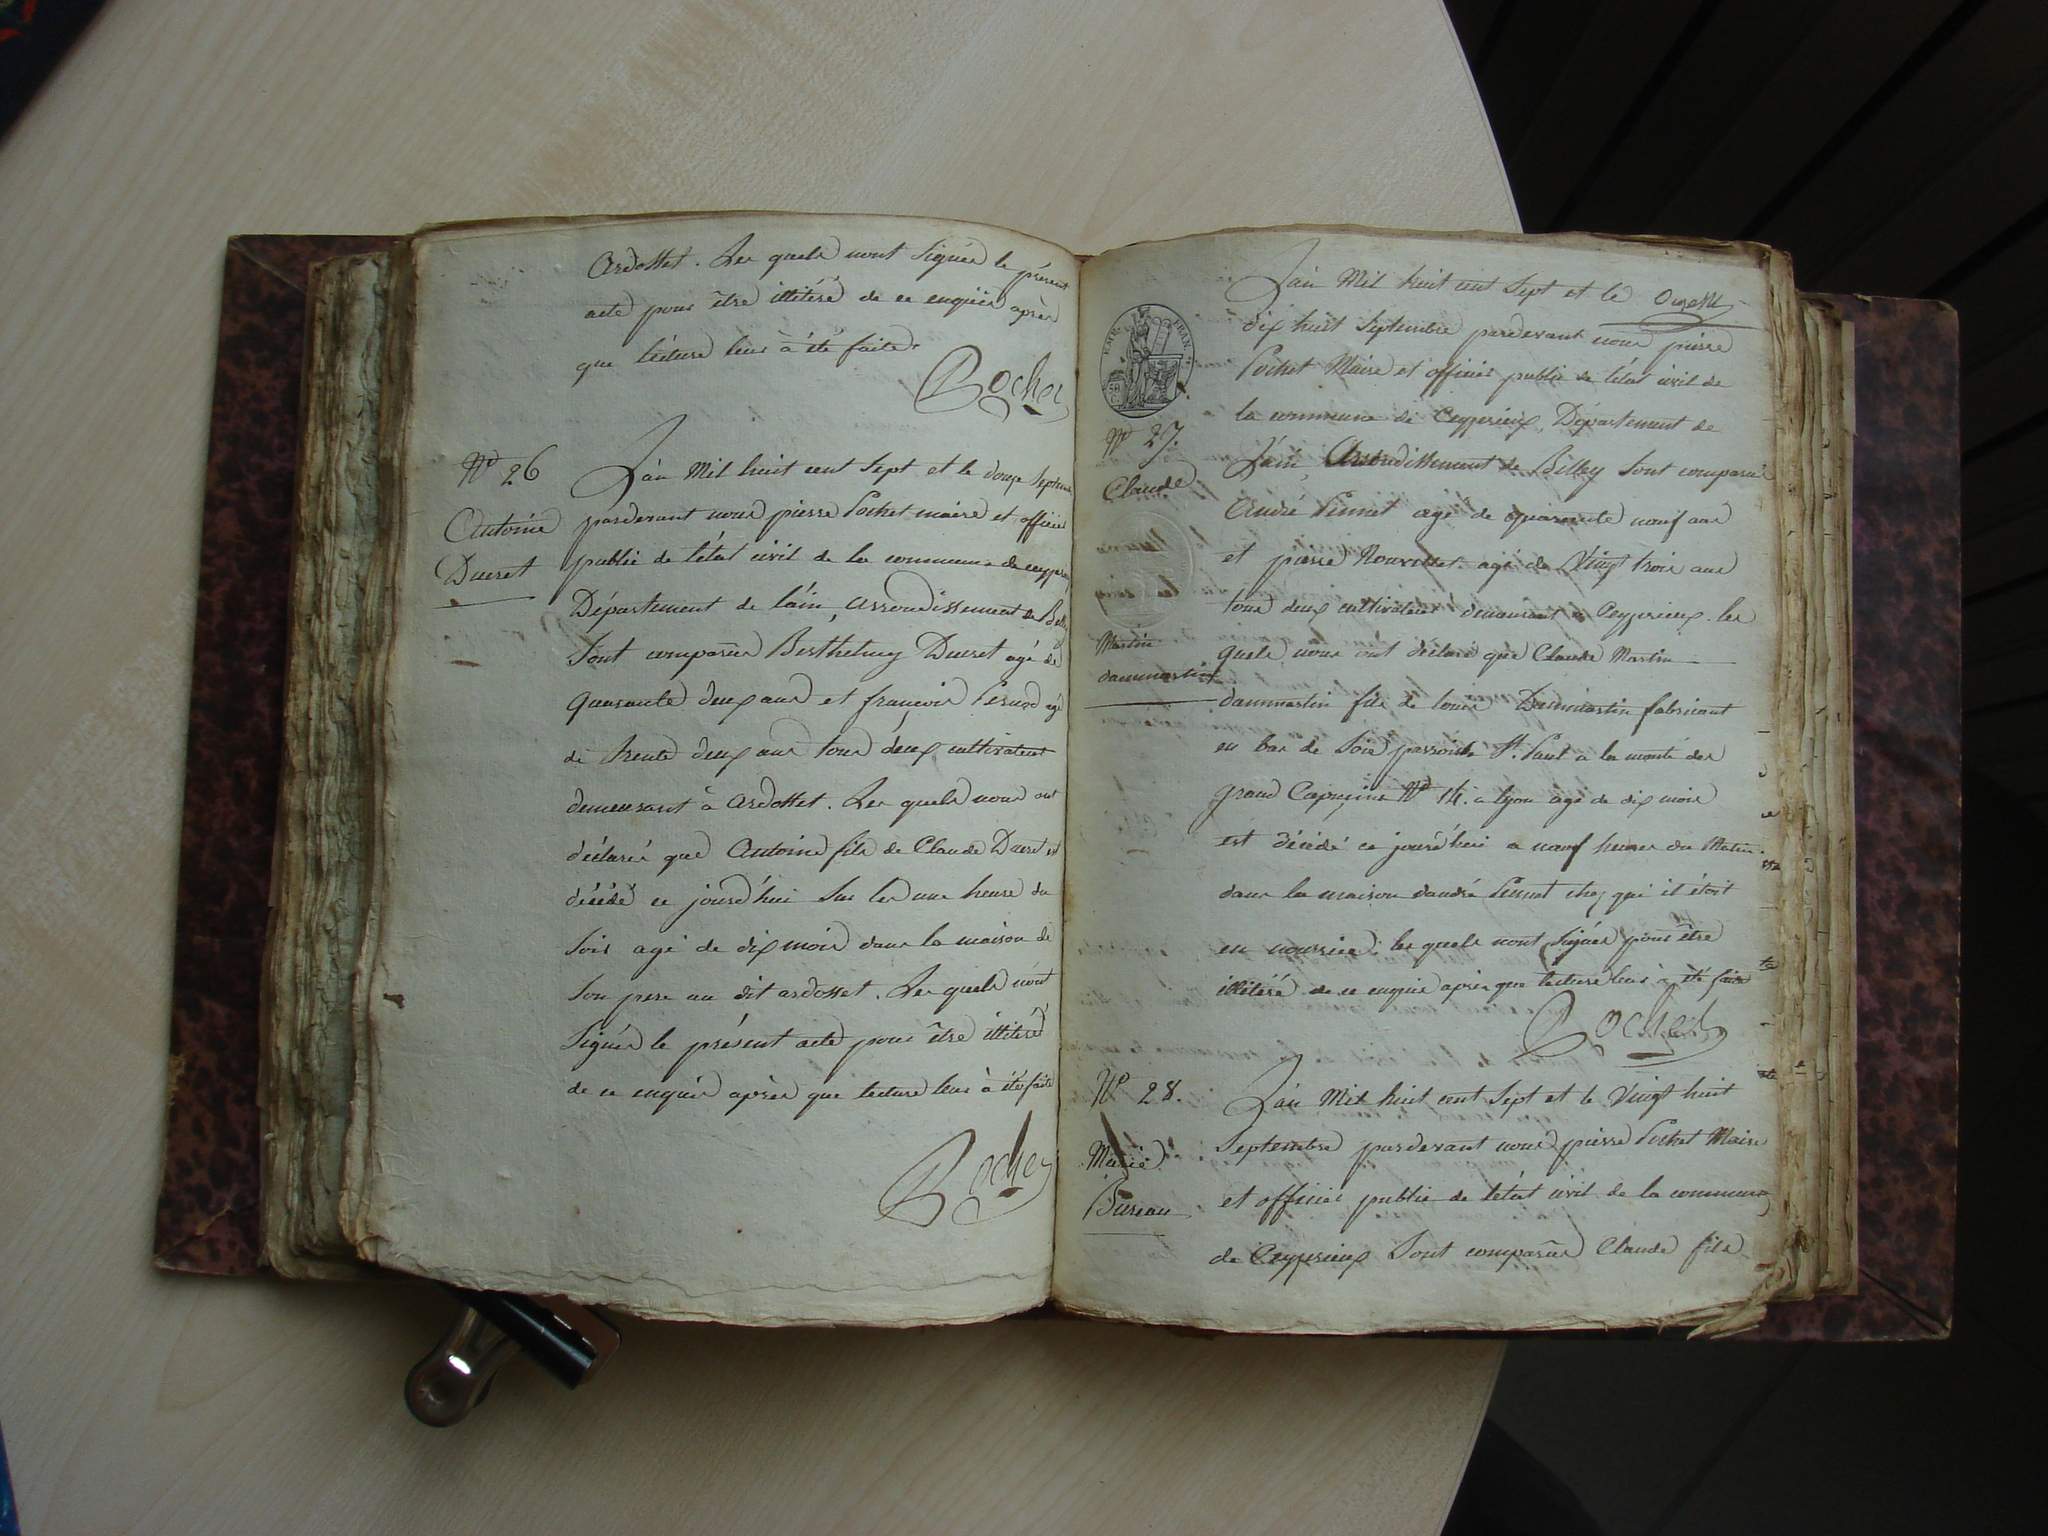 Ardosset. Les quels nont Signés le présent
acte pour être illitéré de ce enquis après
que lécture leur à été faite.
Pochet
No 26
Antoine
Ducret
L'an Mil huit cent Sept et le douze Septembre
pardevant nous pierre Pochet maire et officier
public de l'état civil de la commune de ceyzerieu
Département de l'ain, Arrondissement de Belley
Sont comparus Barthelmy Ducret agé de
quarante deux ans et françois agé
de trente deux ans tous deux cultivateur
demeurant à Ardosset. Les quels nous ont
déclarés que Antoine fils de Claude Ducret est
décédé ce jourd'hui Sur les une heure du
Soir agé de dix mois dans la maison de
Son pere au dit ardosset. Les quels nont
Signés le présent acte pour être illitéré
de ce enquis après que lecture leur à été faite
Pochet
EMP. FRAN.
L'an Mil huit cent Sept et le
dix huit Septembre pardevant nous pierre
Pochet Maire et officier public de l'état civil de
la commune de Ceyzerieux, Département de
No 27.
Claude
Martin
dammartin
l'ain, Arrondissement de Belley Sont comparus
André Pinnet agé de quarante neuf ans
et pierre agé de Vingt trois ans
tous deux cultivateur demeurant a Ceyzerieux. les
quels nous ont déclaré que Claude Martin
dammartin fils de louis Dammartin fabricant
en bas de Soie paroisse St. Paul a la monté des
grand Capucins No 14. a lyon agé de dix mois
est décédé ce jourd'hui a neuf heures du Matin.
dans la maison d'andré Pinnet chez qui il étoit
en nourrice. les quels nont Signés pour être
illitéré de ce enquis après que lecture leur à été faite
Pochet
No 28.
Marie
Bureau
L'an Mil huit cent Sept et le Vingt huit
Septembre pardevant nous pierre Pochet Maire
et officier public de l'état civil de la commune
de Ceyzerieux Sont comparus Claude fils